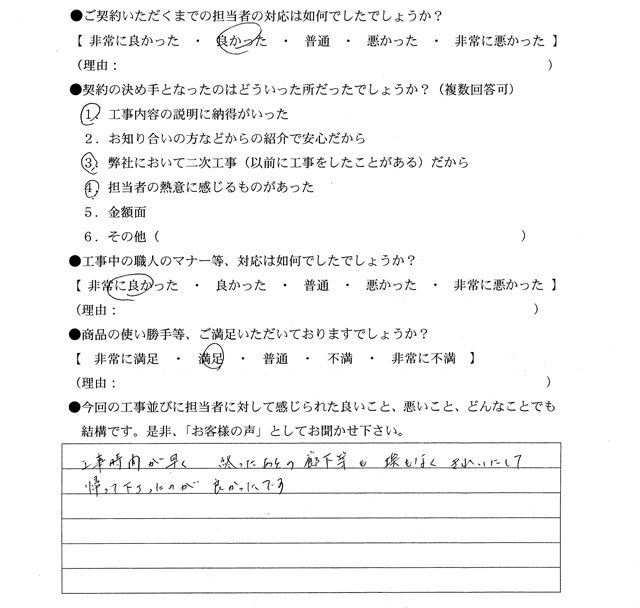 ●ご契約いただくまでの担当者の対応は如何でしたでしょうか？
【 非常に良かった ・ 良かった ・ 普通 ・ 悪かった ・ 非常に悪かった 】
（理由： ）
●契約の決め手となったのはどういった所だったでしょうか？（複数回答可）
１．工事内容の説明に納得がいった
２．お知り合いの方などからの紹介で安心だから
３．弊社において二次工事（以前に工事をしたことがある）だから
４．担当者の熱意に感じるものがあった
５．金額面
６．その他（ ）
●工事中の職人のマナー等、対応は如何でしたでしょうか？
【 非常に良かった ・ 良かった ・ 普通 ・ 悪かった ・ 非常に悪かった 】
（理由： ）
●商品の使い勝手等、ご満足いただいておりますでしょうか？
【 非常に満足 ・ 満足 ・ 普通 ・ 不満 ・ 非常に不満 】
（理由： ）
●今回の工事並びに担当者に対して感じられた良いこと、悪いこと、どんなことでも
結構です。是非、「お客様の声」としてお聞かせ下さい。
工事時間が早く 終ったあとの廊下等も 埃もなく きれいにして
帰って下さったのが 良かったです